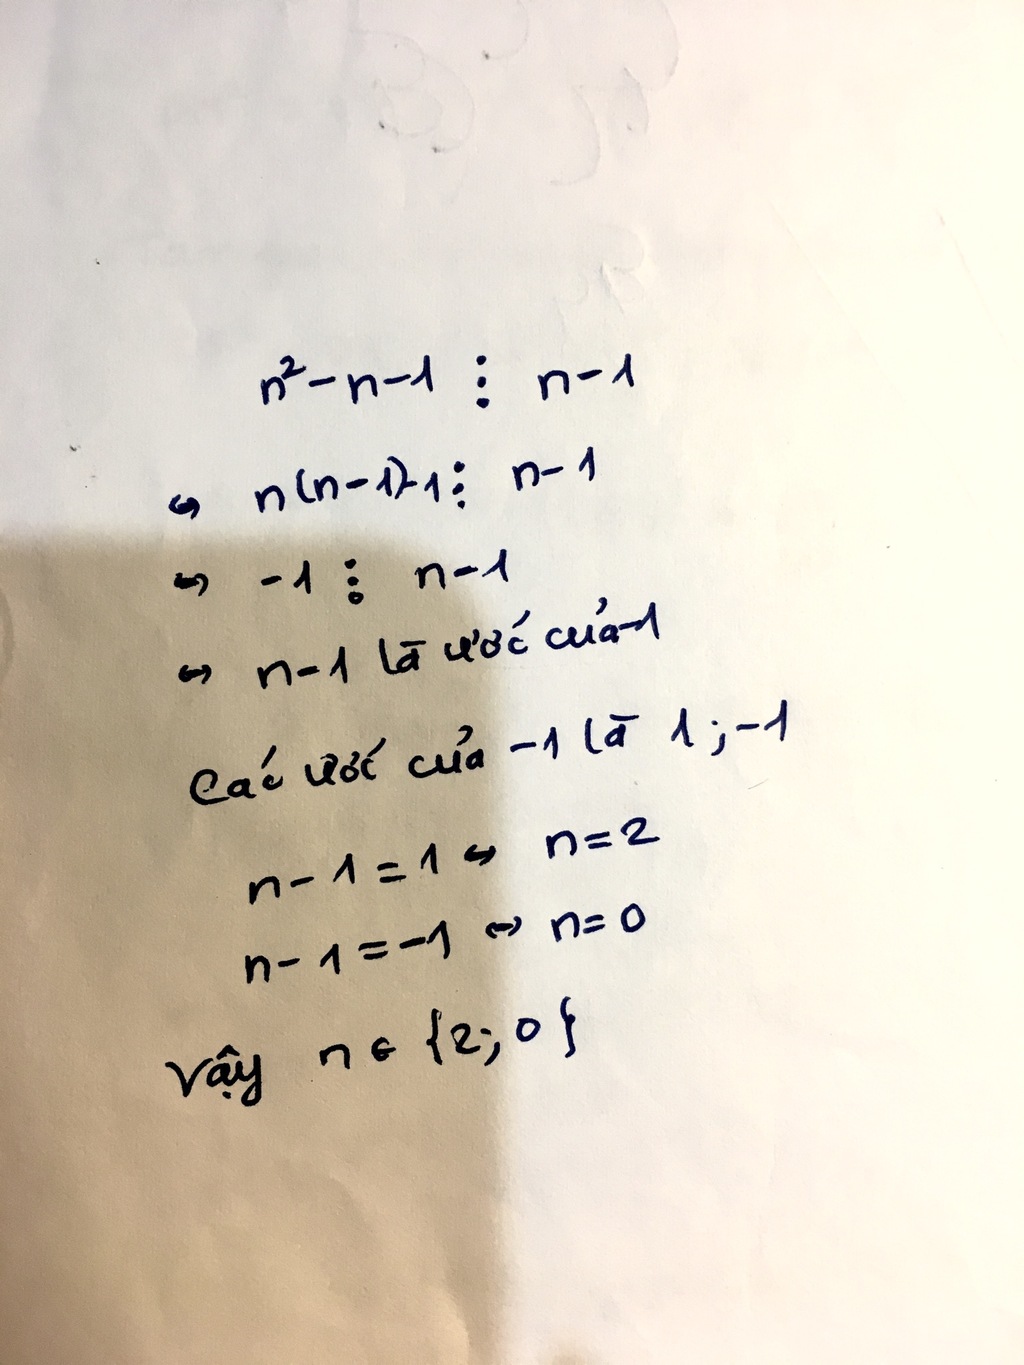 n²-n-1 ⋮ n-1
⇔ n(n-1)-1 ⋮ n-1
⇔ -1 ⋮ n-1
⇔ n-1 là ước của -1
Các ước của -1 là 1; -1
n-1=1 ⇔ n=2
n-1=-1 ⇔ n=0
Vậy n ∈ {2; 0}